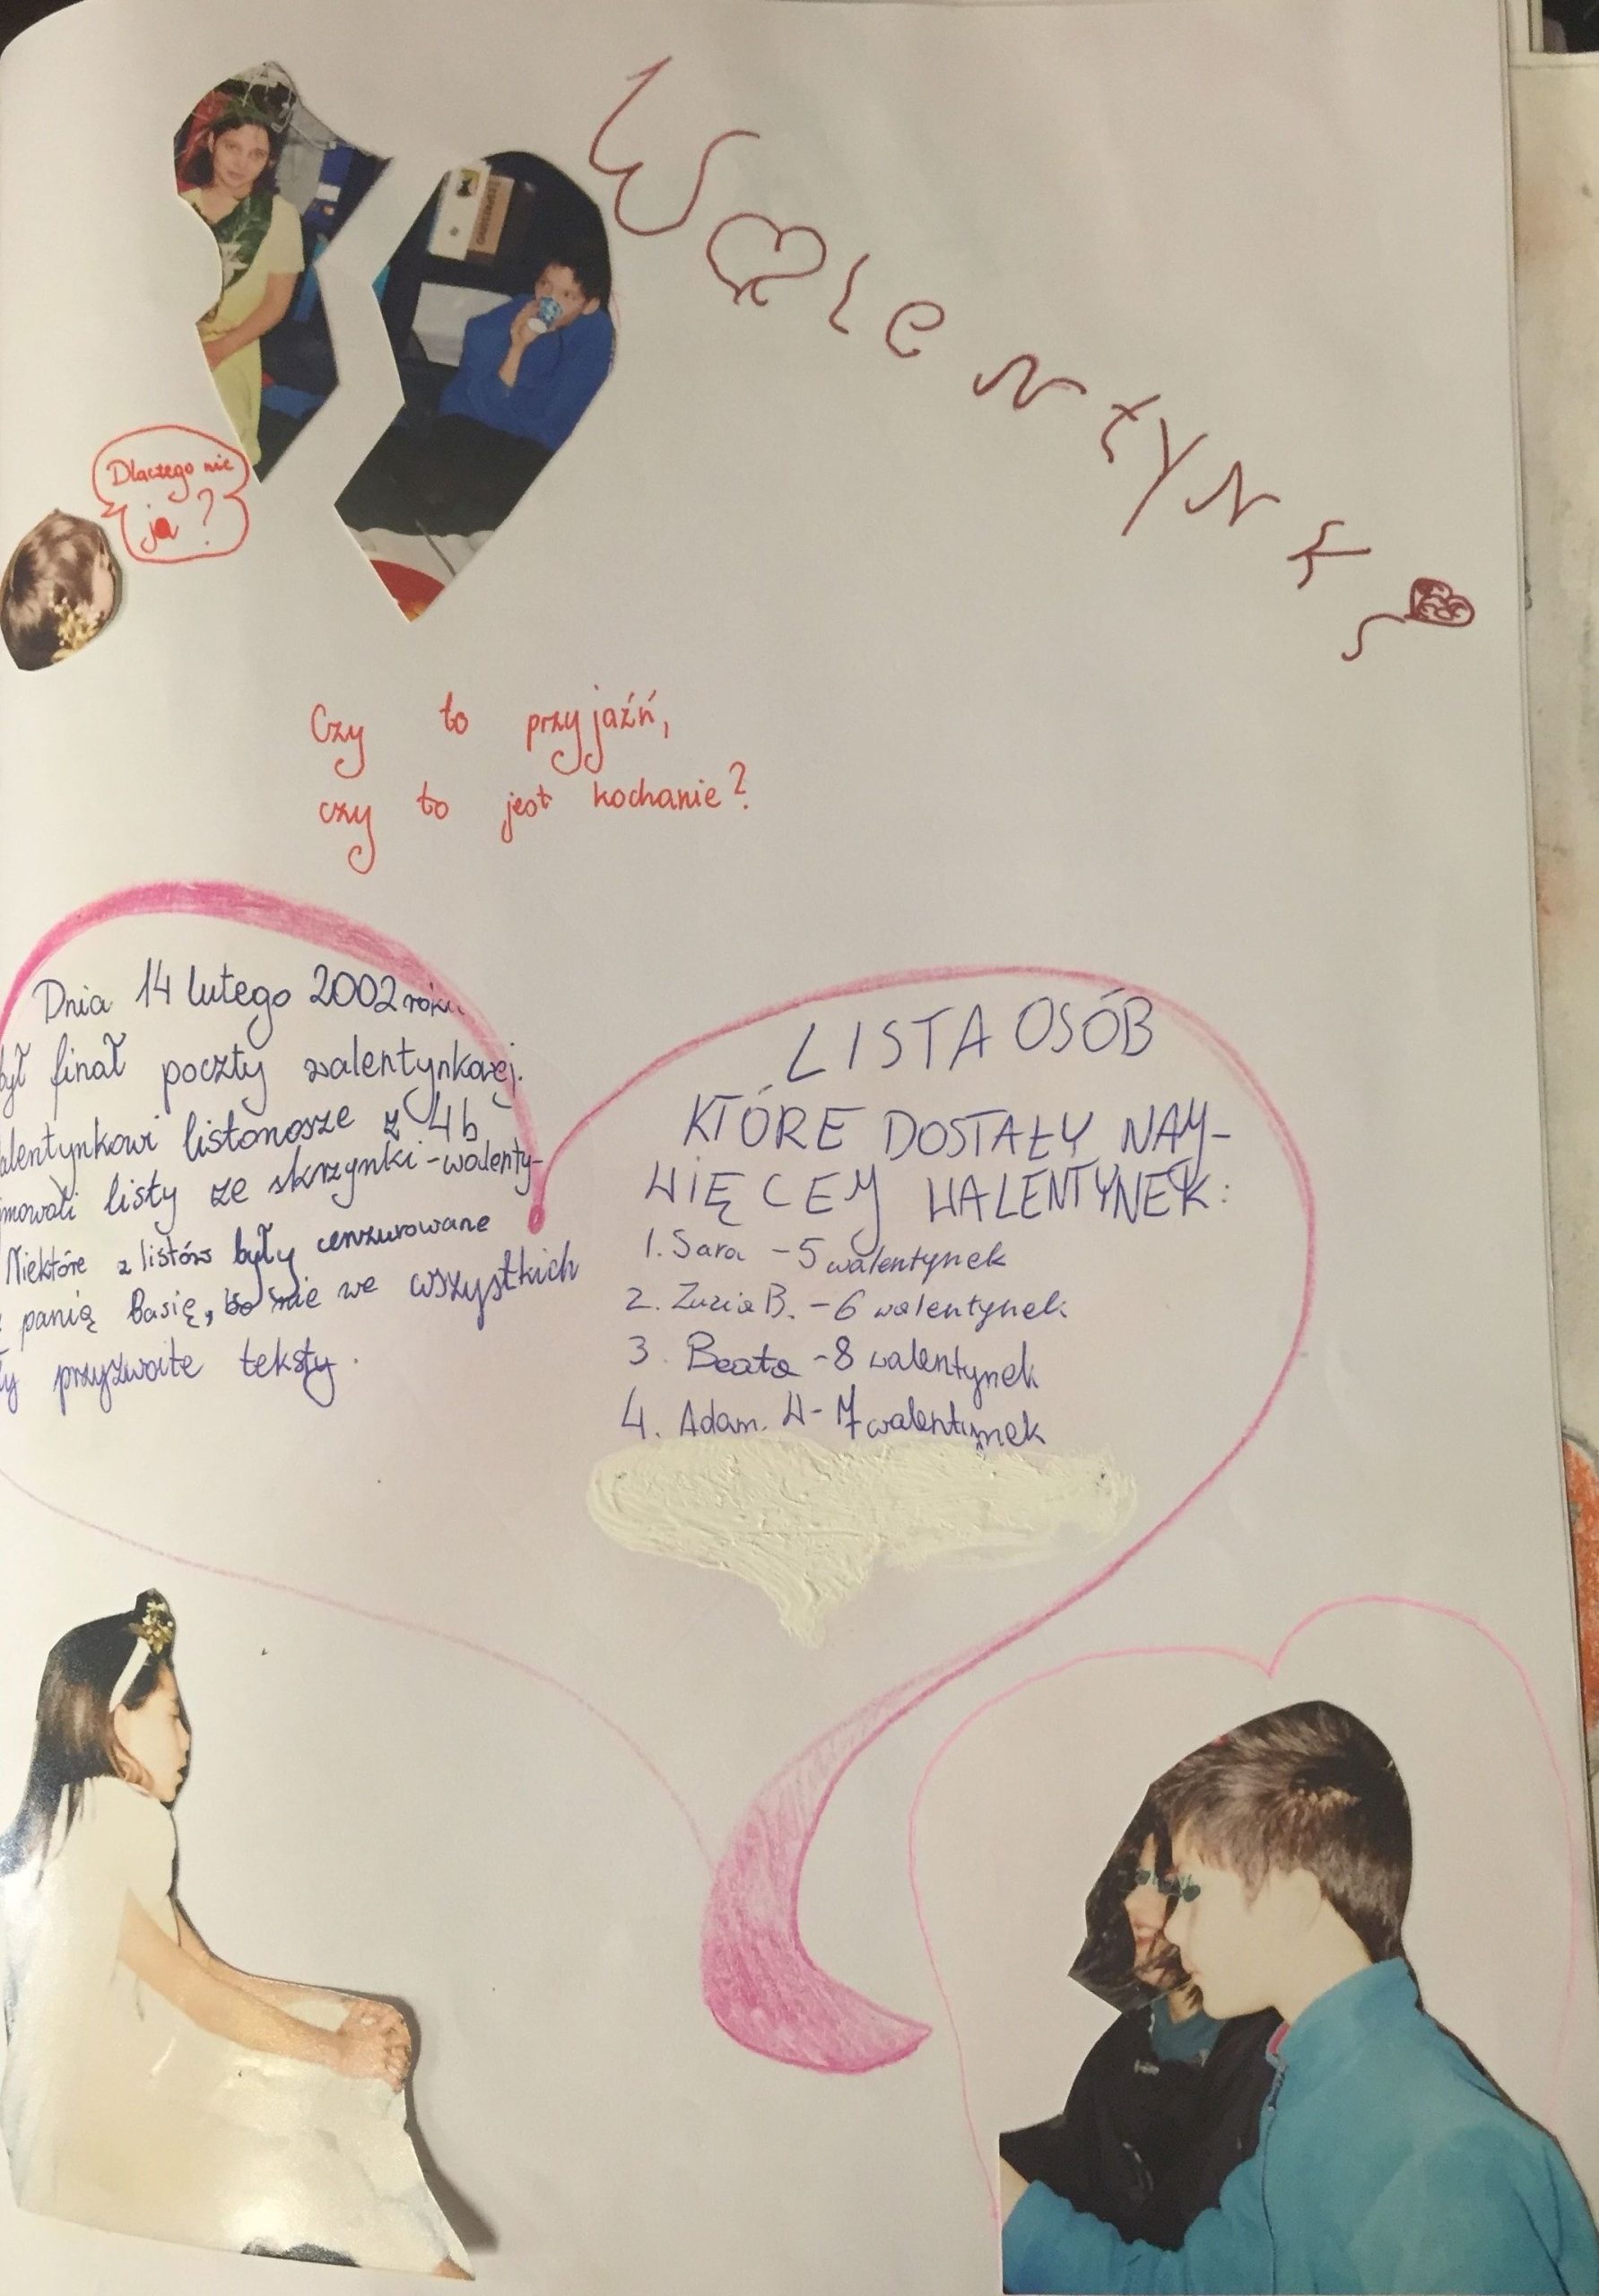 Walentynki
Dlaczego nie
ja?
Czy to przyjaźń,
czy to jest kochanie?
Dnia 14 lutego 2002 roku
był finał poczty walentynkowej.
alentynkowi listonosze z 4b
mowali listy ze skrzynki-walenty-
Niektóre z listów były cenzurowane
panią Basię, bo nie we wszystkich
ły przyzwoite teksty.
LISTA OSÓB
KTÓRE DOSTAŁY NAJ-
WIĘCEJ WALENTYNEK:
1. Sara - 5 walentynek
2. Zuzia B. - 6 walentynek
3. Beata - 8 walentynek
4. Adam. W - 7 walentynek